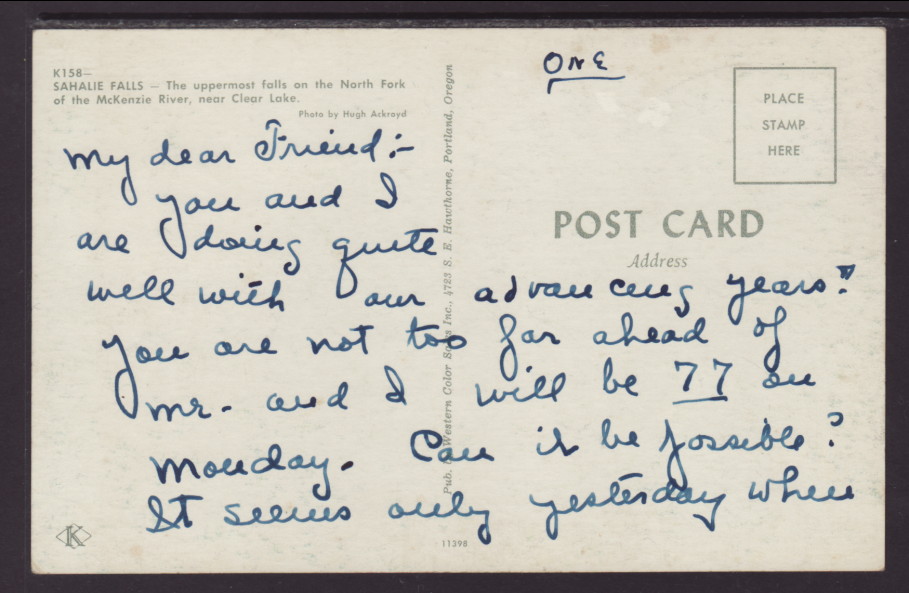 K158—
SAHALIE FALLS — The uppermost falls on the North Fork
of the McKenzie River, near Clear Lake.
Photo by Hugh Ackroyd
ONE
PLACE
STAMP
HERE
POST CARD
Address
My dear Friend:-
You and I
are doing quite
well with our advancing years!"
You are not too far ahead of
mr. and I will be 77 on
Monday. Can it be possible?
It seems only yesterday when
Pub. Western Color Inc., 4723 S. E. Hawthorne, Portland, Oregon
K
11398